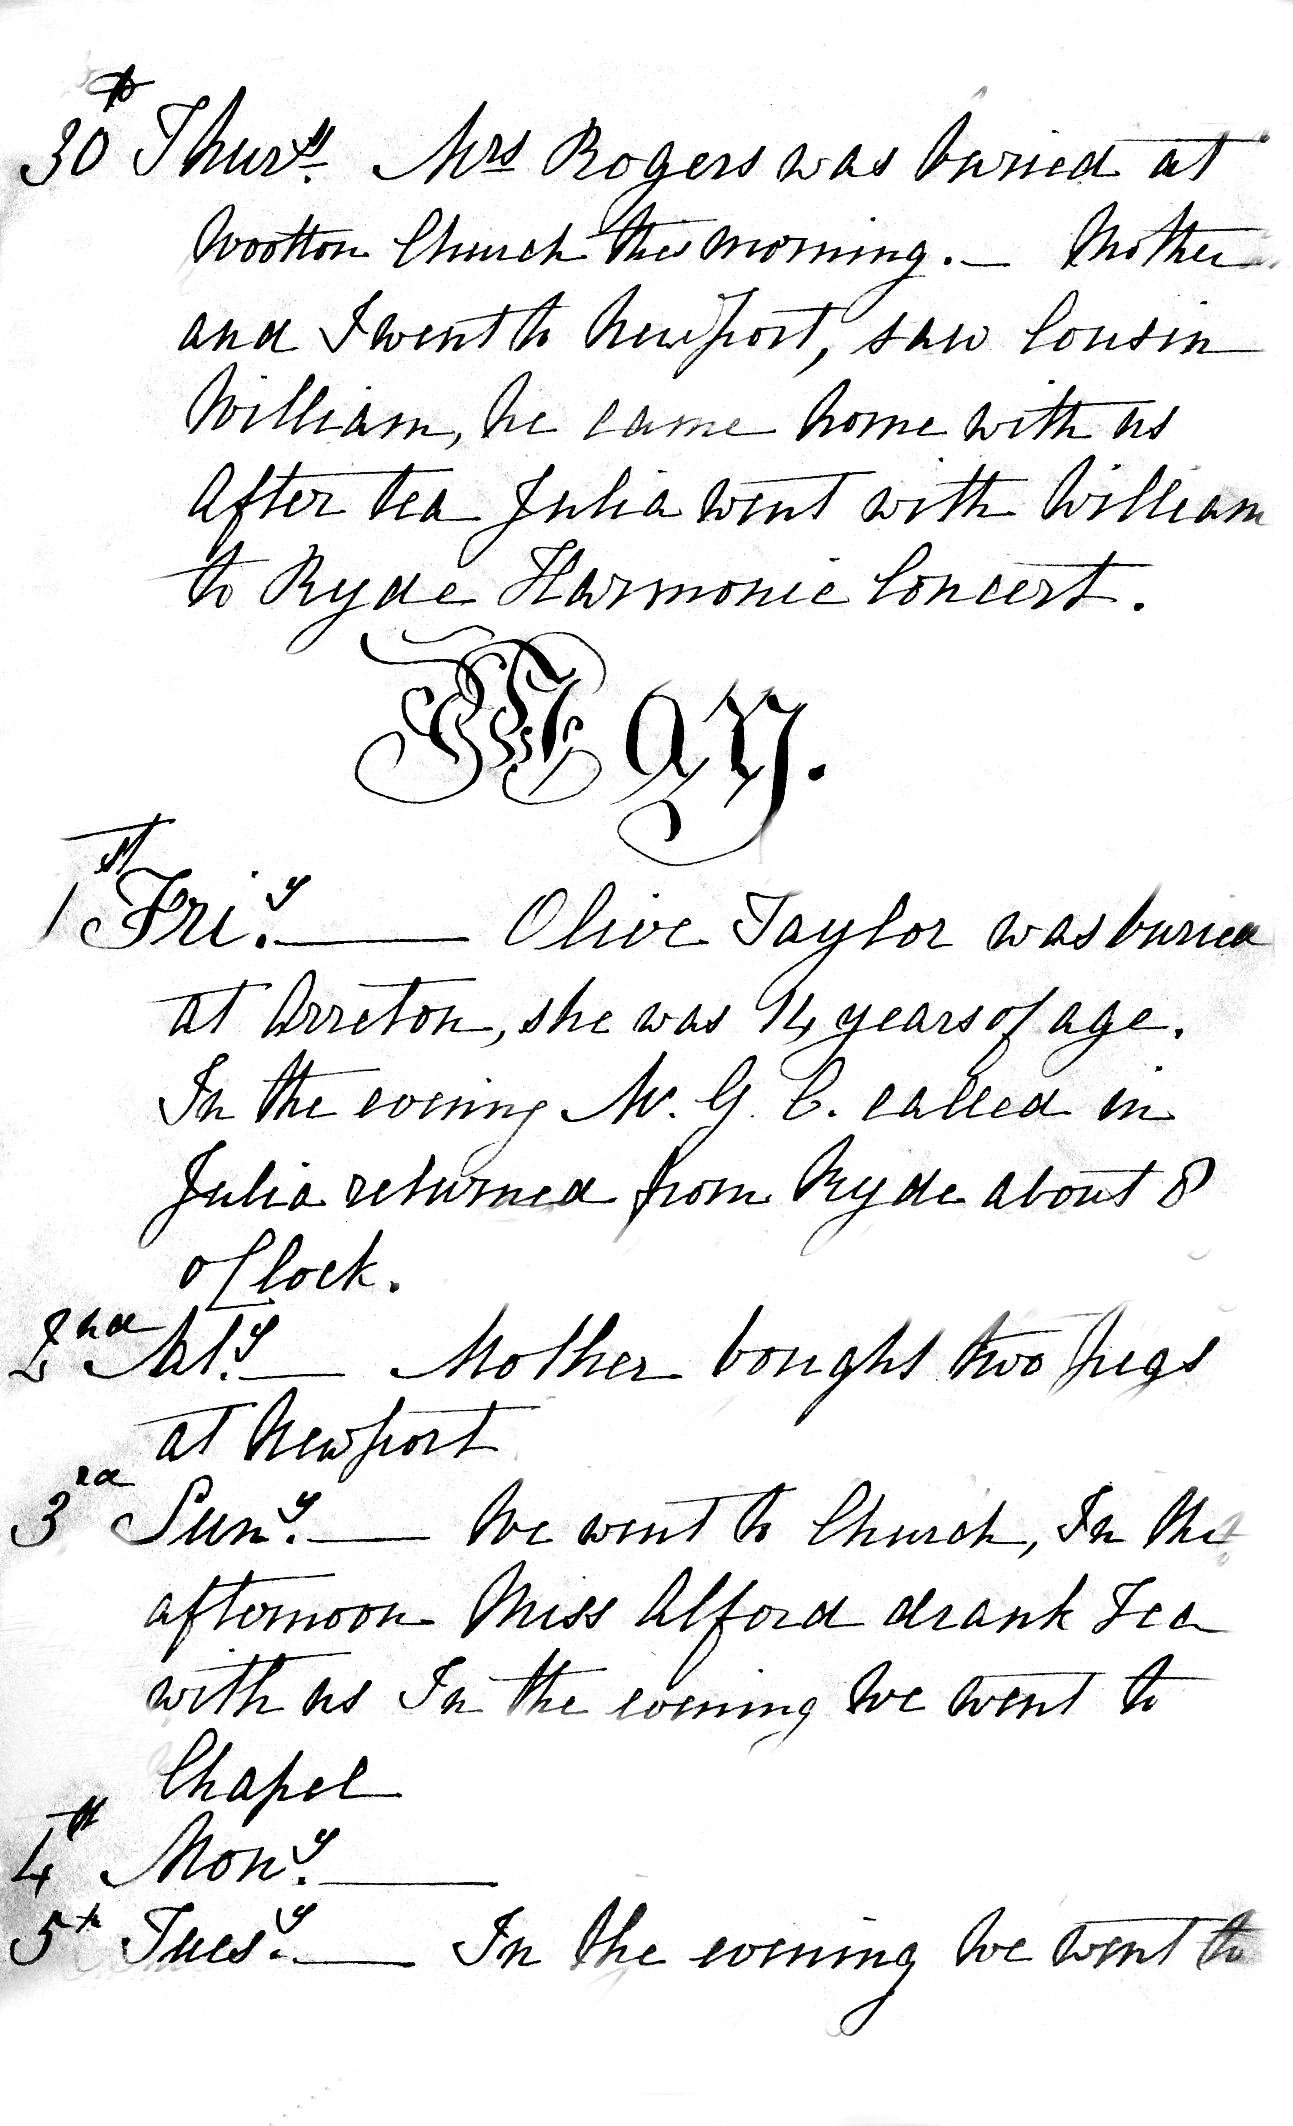 30th Thurs.y Mrs Rogers was buried at
Wootton Church this morning.— Mother
and I went to Newport, saw Cousin
William, he came home with us
After tea Julia went with William
to Ryde Harmonic Concert.
May.
1st Fri.y — Olive Taylor was buried
at Arreton, she was 14 years of age.
In the evening Mr. G. C. called in
Julia returned from Ryde about 8
oClock.
2nd Sat.y — Mother bought two pigs
at Newport
3rd Sun.y — We went to Church, In the
afternoon Miss Alford drank Tea
with us In the evening We went to
Chapel
4th Mon.y —
5th Tues.y — In the evening We went to